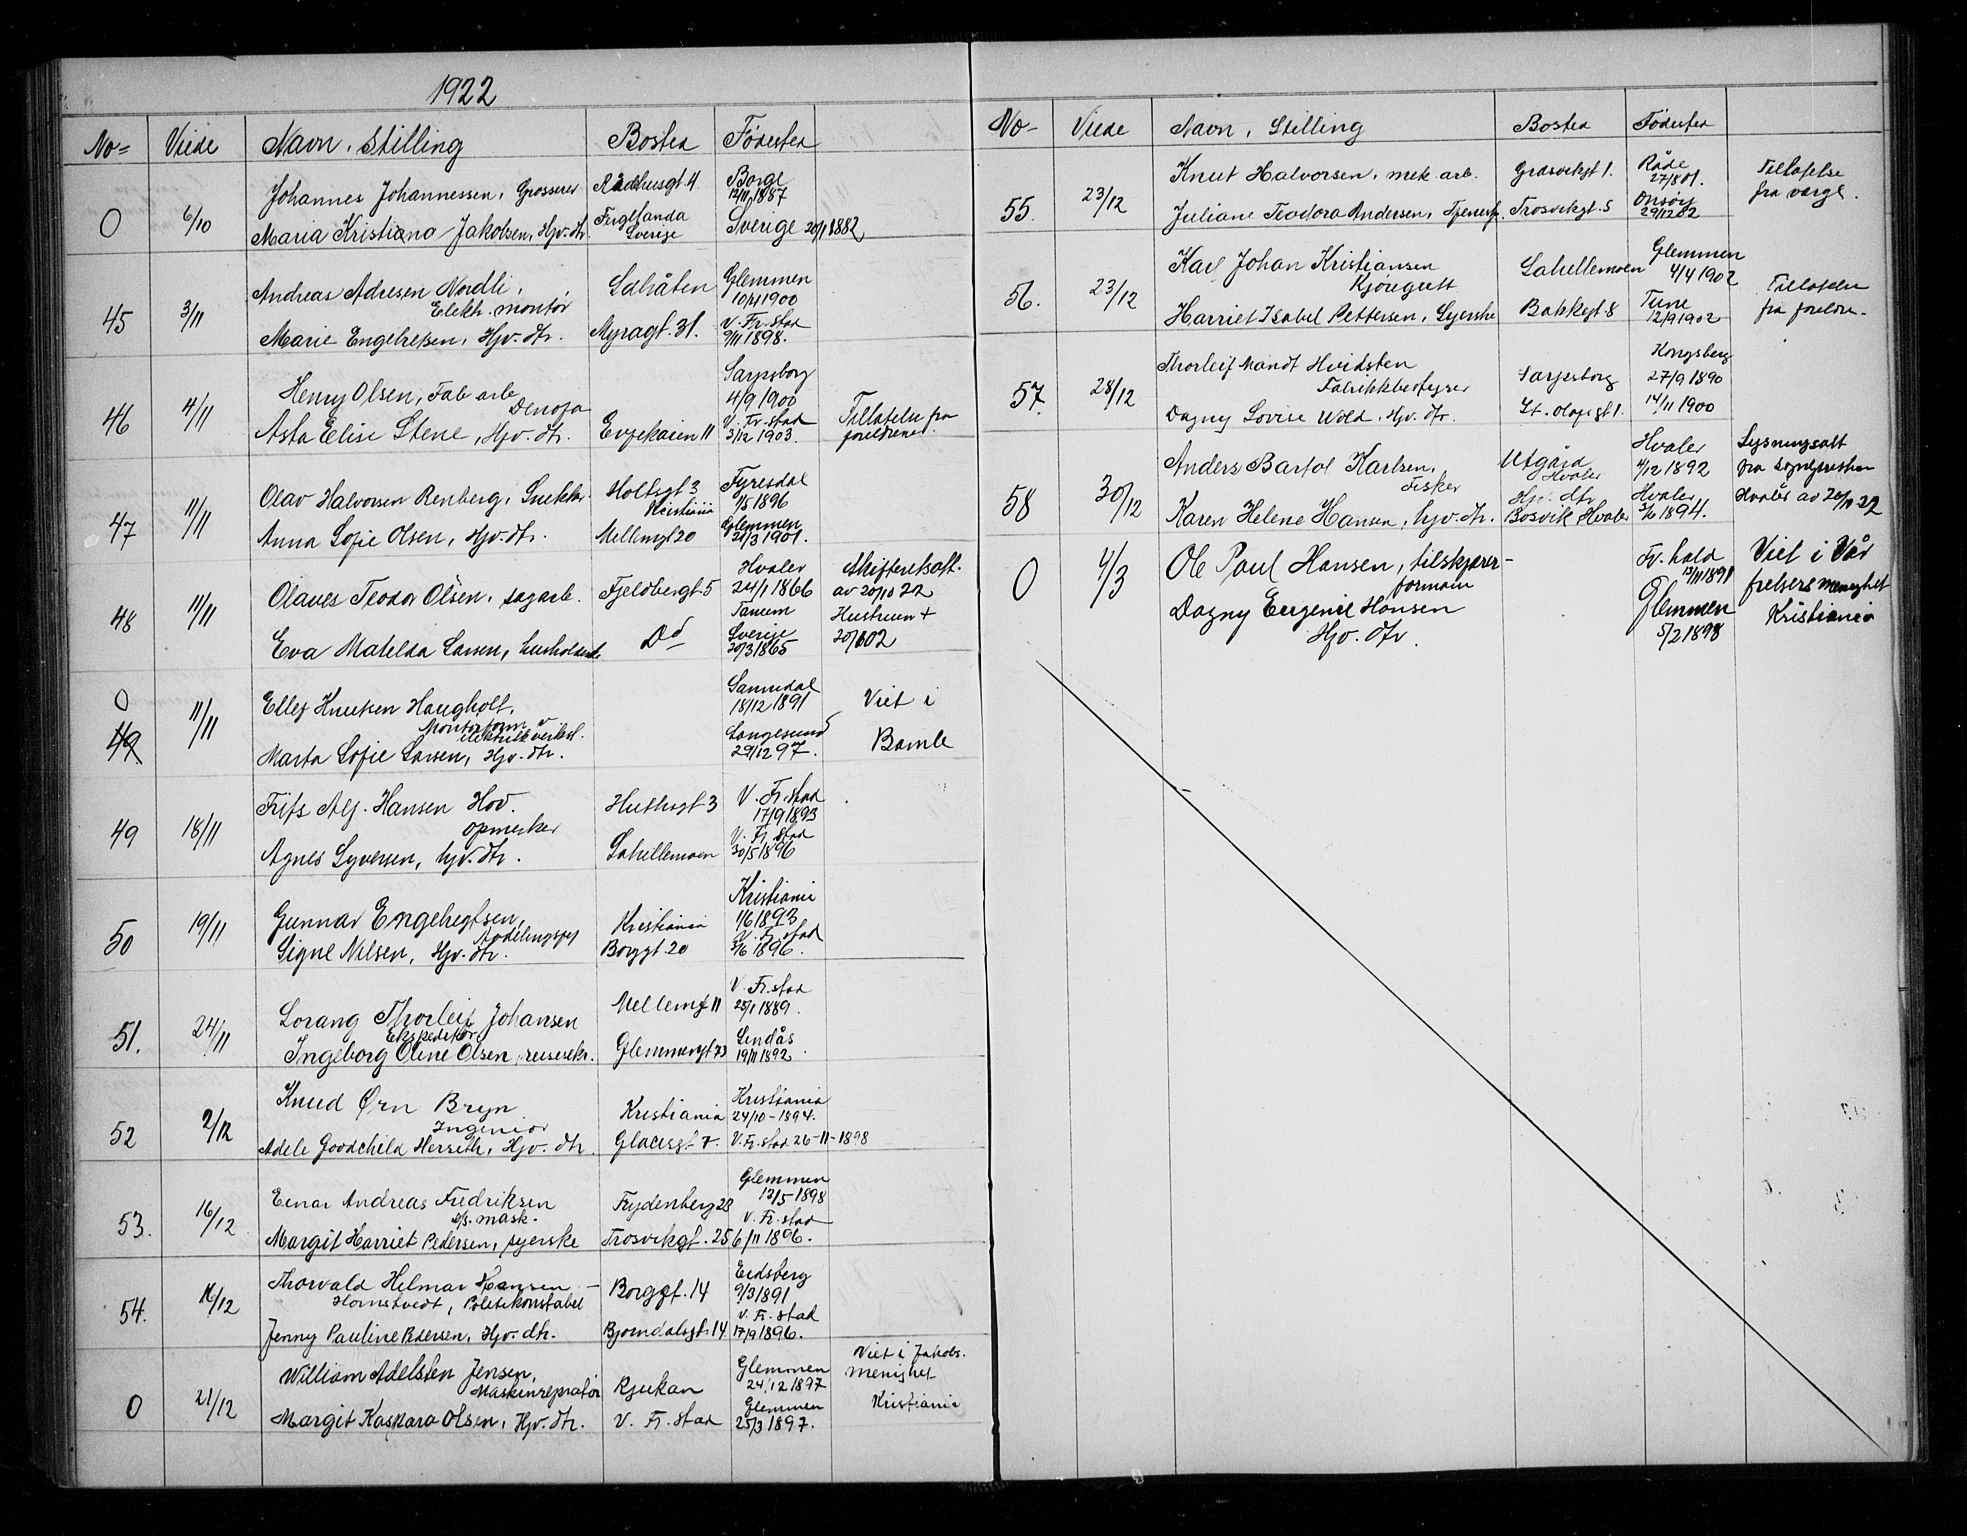 1922
No= Viede Navn, Stilling Bosted Fødested
Johannes Johannessen, Grosserer Rådhusgt 4 Borge
12/11 1887
0 6/10 Fuglanda
Maria Kristiana Jakobsen, Hjv. dtr. Sverige Sverige 20/1 1882
Andreas Adresen Nordli, Sahåten Glemmen
Elektr. montør 10/4 1900
45 3/11 V. Fr. stad
Marie Engebretsen, Hjv. dtr. Myragt. 31. 9/11 1898.
Henry Olsen, Fab arb Sarpsborg
Denofa 4/9 1900
46 4/11 V. Fr. stad Tillatelse fra
Asta Elise Stene, Hjv. dtr. Evjekaien 11 3/12 1903. foreldrene.
Olav Halvorsen Renberg, Snekker Holtsgt 3 Fyresdal
Kristiania 1/5 1896
47 11/11 Glemmen
Anna Sofie Olsen, Hjv. dtr. Mellemgt 20 21/3 1901.
Hvaler Skifteretsatt.
Olaves Teodor Olsen, sagarb. Fjeldbergt 5 24/1 1866 av 20/10 22
48 11/11 Tanum Hustruen +
Sverige
Eva Matelda Larsen, husholderske Do 20/3 1865 20/6 02
0 Ellef Knutsen Haugholt, Sannidal
18/12 1891 Viet i
11/11 Montørform. v
elektrisk verkst.
49 Langesund
Marta Sofie Larsen, Hjv. dtr. 29/12 97. Bamle
Frits Alf. Hansen Hov. Huthsgt 3 V. Fr. stad
17/9 1893
49 18/11 opmerker V. Fr. stad
Agnes Syversen, hjv. dtr. Lahellemoen 30/5 1896
Gunnar Engebretsen, Kristiania Kristiania
1/6 1893
50 19/11 Avdelingssjef V. Fr. stad
Signe Nilsen, Hjv. dtr. Borggt 20 3/6 1896.
Lorang Thorleif Johansen Mellemgt 11 V. Fr. stad
25/1 1889.
51. 24/11 Ekspeditør Lindås
Ingeborg Oline Olsen, reisesekr. Glemmengt 73 19/11 1892.
Knud Ørn Bryn. Kristiania Kristiania
24/10-1894.
52 2/12 Ingeniør
Adele Goodchild Herseth, Hjv. dtr. Glacisgt 7. V. Fr. stad 26-11-1898
Einar Andreas Fredriksen Frydenberg 28 Glemmen
13/5 1898
53. 16/12 d/s. mask. V. Fr. stad
Margit Harriet Pedersen, syerske Trosvikgt. 25 6/11 1896.
Thorvald Hilmar Hansen- Borggt. 14 Eidsberg
9/3 1891
54. 16/12 Hornstvedt, Politikonstabel V. Fr. stad
Jenny Pauline Pedersen, Hjv. dtr. Bjørndalsgt. 14 17/9 1896.
William Adelsten Jensen, Glemmen Viet i Jakobs.
Maskinreparatør Rjukan 24/12 1897 menighet
0 21/12 Glemmen Kristiania
Margit Kaspara Olsen, Hjv. dtr. V. Fr. stad 25/3 1897.
No- Viede Navn, Stilling Bosted Fødested
Knut Halvorsen, mek arb. Gråsvikgt 1. Råde Tillatelse
27/8 01. fra verge.
55. 23/12 Onsøy
Juliane Teodora Andersen, Tjenesp. Trosvikgt. 5 29/12 02
Karl Johan Kristiansen Lahellemoen Glemmen
Kjøregutt 4/4 1902 Tillatelse
56. 23/12 Tune
Harriet Isabel Pettersen, Syerske Bakkegt. 8 12/9 1902 fra foreldre-
Thorleif Mandt Hvidsten Kongsberg
Fabrikkbestyrer Sarpsborg 27/9 1890
57. 28/12
Dagny Lovise Wold, Hjv. dtr. St. Olafsgt 1. 14/11 1900
Anders Bartol Karlsen, Utgård Hvaler Lysningsatt
Fisker Hvaler 4/12 1892 fra Sognepresten
58 30/12 Hjv. dtr Hvaler Hvaler av 20/12 22
Karen Helene Hansen, hjv. dtr. Bosvik Hvaler 5/6 1894.
Ole Paul Hansen, tilskjærer- Fr. hald Viet i Vår
0 4/3 formann 13/11 1891 frelsers menighet
Dagny Eugenie Hansen Glemmen Kristiania
Hjv. dtr. 5/2 1898